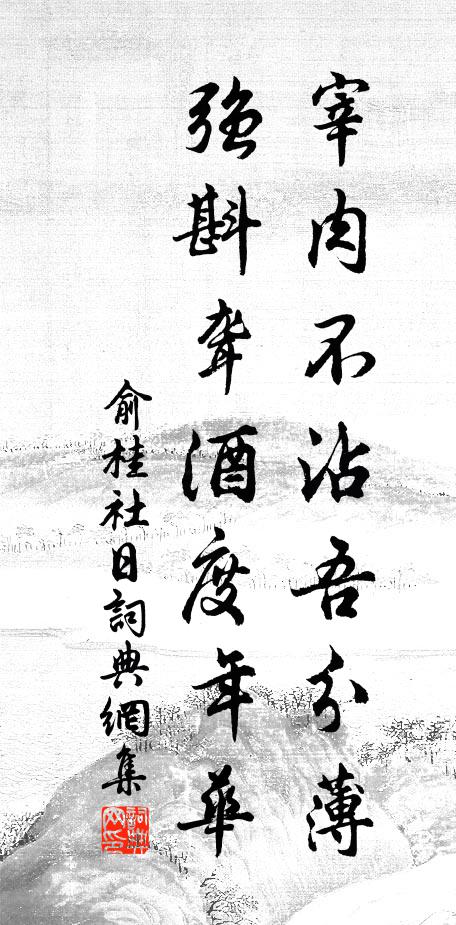 宰肉不沾吾分薄
強斟聾酒度年華
俞桂社日詞典網集